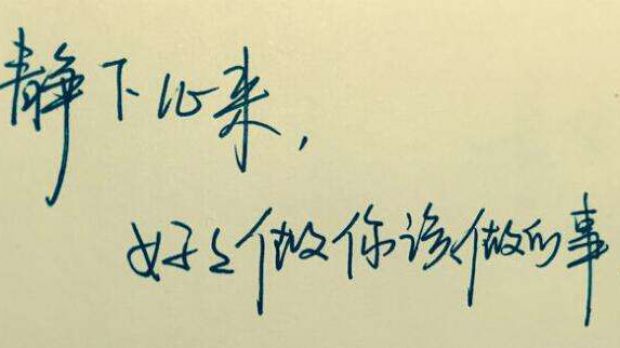 静下心来,
好好做你该做的事